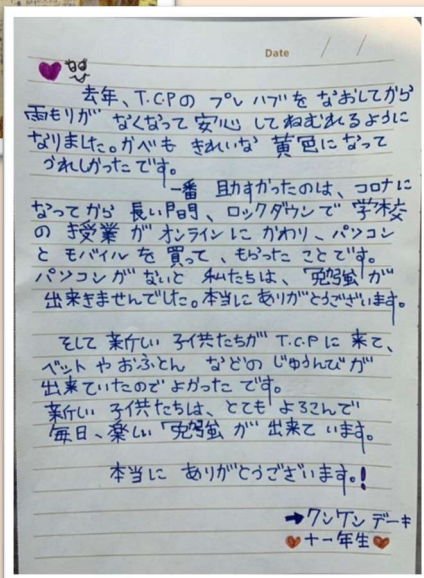 Date / /
去年、T.C.Pの プレハブを なおしてから
雨もりが なくなって 安心 してねむれるように
なりました。かべも きれいな 黄色になって
うれしかったです。
一番 助すかったのは、コロナに
なってから 長い間、ロックダウンで 学校
の 授業が オンラインに かわり、パソコン
と モバイルを 買って、もらった ことです。
パソコンが ないと 私たちは、勉強が
出来きませんでした。本当に ありがとうございます。
そして 新しい 子供たちが T.C.Pに 来て、
ベットや おふとん などの じゅうんびが
出来ていたので よかった です。
新しい 子供たちは、とても よろこんで
毎日、楽しい 勉強 が 出来て います。
本当に ありがとうございます。!
→クンケン デーキ
十一年生